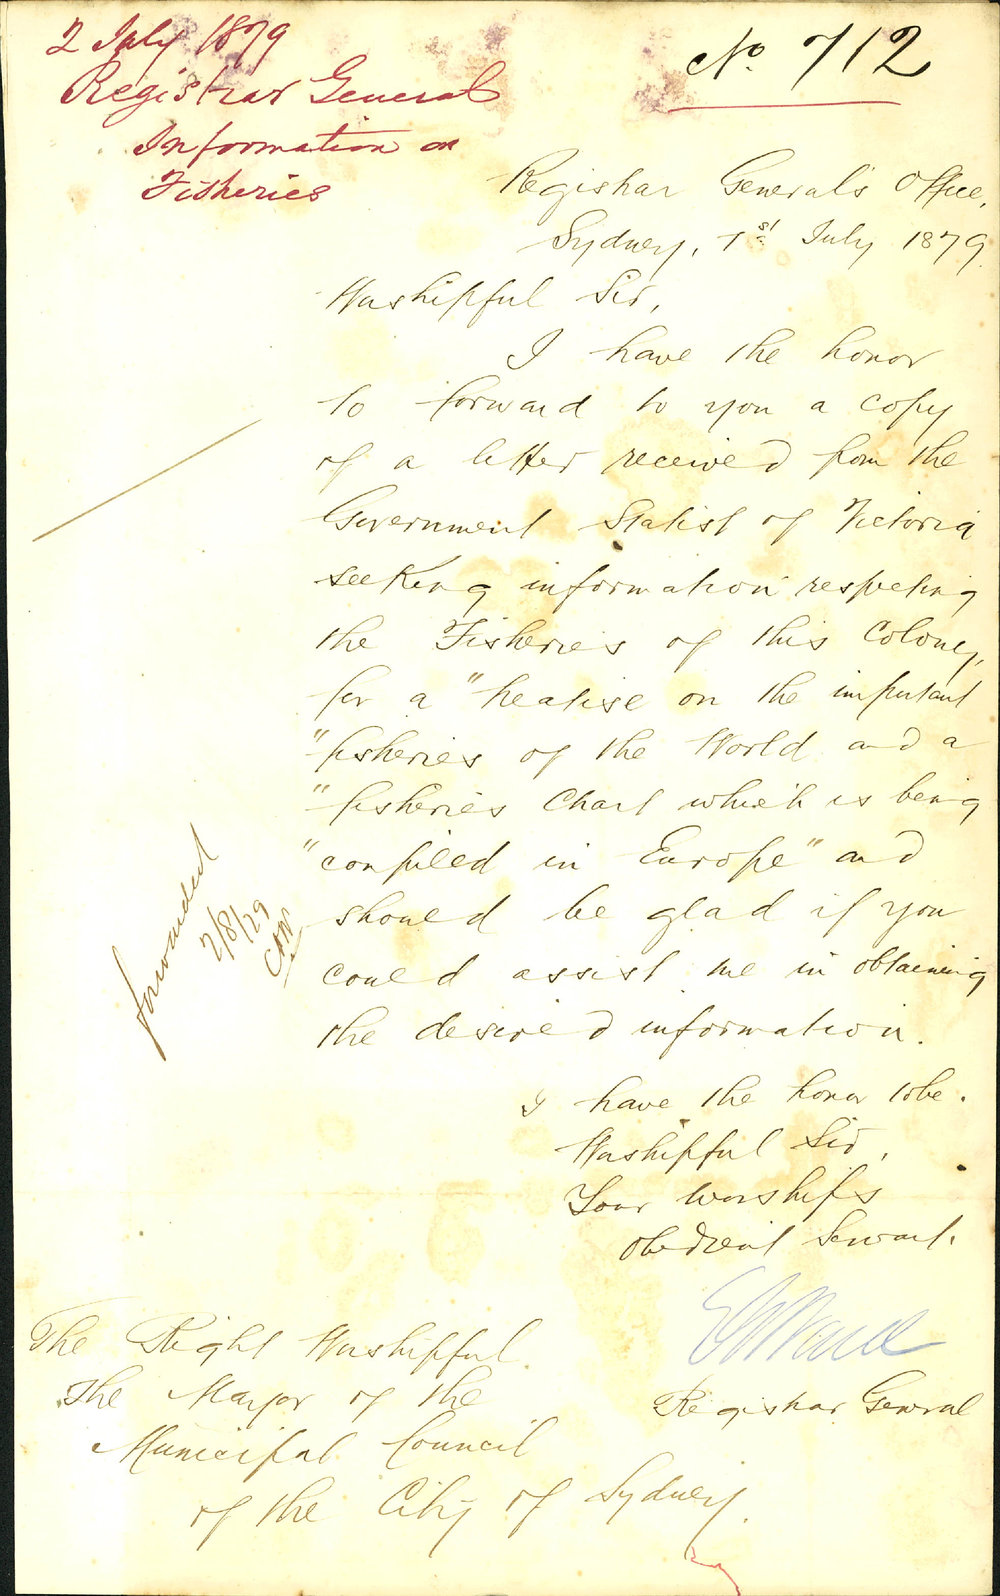 2 July 1879
Registrar General
Information on
Fisheries
No. 712
Registrar General's Office,
Sydney, 1st July 1879.
Worshipful Sir,
I have the honor
to forward to you a copy
of a letter received from the
Government Statist of Victoria
seeking information respecting
the Fisheries of this Colony,
for a "treatise on the important
"fisheries of the World and a
"fisheries Chart which is being
"compiled in Europe" and
should be glad if you
could assist me in obtaining
the desired information.
I have the honor to be.
Worshipful Sir,
Your Worship's
Obedient Servant.
Registrar General
The Right Worshipful
The Mayor of the
Municipal Council
of the City of Sydney.
forwarded
2/8/79